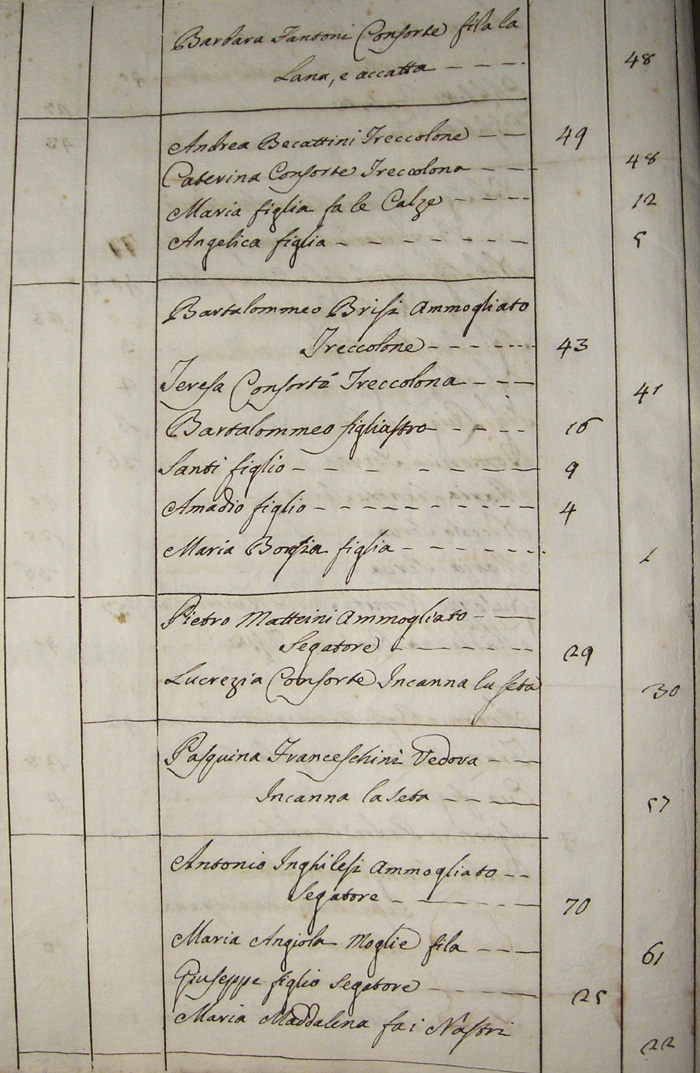 Barbara Fantoni Consorte fila la
Lana, e accatta - - - - 48
Andrea Becattini Treccolone - - 49
Caterina Consorte Treccolona - - - 48
Maria figlia fa le Calze - - - - 12
Angelica figlia - - - - - - 5
Bartalommeo Brisi Ammogliato
Treccolone - - - - - 43
Teresa Consorte Treccolona - - - 41
Bartalommeo figliastro - - - - 16
Santi figlio - - - - - - 9
Amadio figlio - - - - - - - 4
Maria figlia - - - - - - 1
Pietro Matteini Ammogliato - -
Segatore - - - - - - 29
Lucrezia Consorte Incanna la seta 30
Pasquina Franceschini Vedova - -
Incanna la seta - - - - 57
Antonio Inghilesi Ammogliato - -
Segatore - - - - - 70
Maria Angiola Moglie fila - - - 61
Giuseppe figlio Segatore - - - - 25
Maria Maddalena fa i Nastri 22